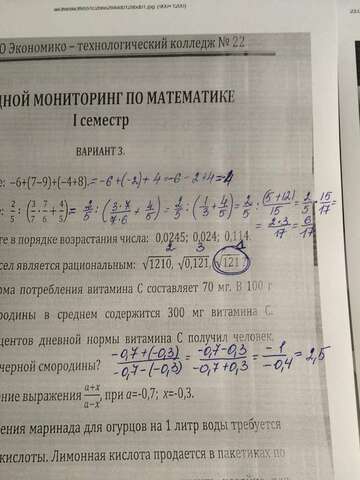 О Экономико – технологический колледж № 22
ДНОЙ МОНИТОРИНГ ПО МАТЕМАТИКЕ
I семестр
ВАРИАНТ 3.
е: –6+(7–9)+(–4+8). = –6+(–2)+4 = –6–2+4 = –4
е: 2/5 : (3/7 · 7/6 + 4/5) = 2/5 : (3·7/7·6 + 4/5) = 2/5 : (1/3 + 4/5) = 2/5 : (5+12)/15 = 2/5 · 15/17 =
= 2·3/17 = 6/17
те в порядке возрастания числа: 0,0245; 0,024; 0,114.
2 3
сел является рациональным: √1210, √0,121, √121?
рма потребления витамина С составляет 70 мг. В 100 г
родины в среднем содержится 300 мг витамина С.
центов дневной нормы витамина С получил человек,
черной смородины? –0,7+(–0,3)/–0,7–(–0,3) = –0,7–0,3/–0,7+0,3 = –1/–0,4 = 2,5
ение выражения a+x/a–x, при a=-0,7; x=-0,3.
ения маринада для огурцов на 1 литр воды требуется
кислоты. Лимонная кислота продается в пакетиках по